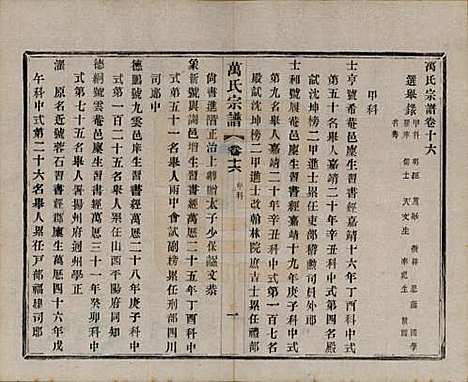 萬氏宗譜卷十六
選舉錄
甲科
士亨號希菴邑廩生習書經嘉靖十六年丁酉科中式
第五十名舉人嘉靖二十年辛丑科中式第一百七名
殿試沈坤榜二甲進士任吏部稽勳司員外郎
士利號履菴邑廩生習書經嘉靖十九年庚子科中式
第九名舉人嘉靖二十年辛丑科中式第一百一名
殿試沈坤榜二甲進士改翰林院庶吉士歷任禮部
萬氏宗譜
卷十六
甲科
一
尚書進階正治上卿贈太子少保謚文恭
象新號與邑增生習書經萬歷二十五年丁酉科中
式第五十一名舉人兩中會試副榜任刑部四川
司郎中
德鵬號九雲邑庠生習書經萬歷二十八年庚子科中
式第一百二十五名舉人任山西平陽府同知
德綱號雲菴邑庠生習書經萬歷三十一年癸卯科中
式第七十五名舉人署揚州府通州學正
濯 原名近號蓉石習書經郡廩生萬歷四十六年戊
午科中式第二十六名舉人任戶部福建司郎